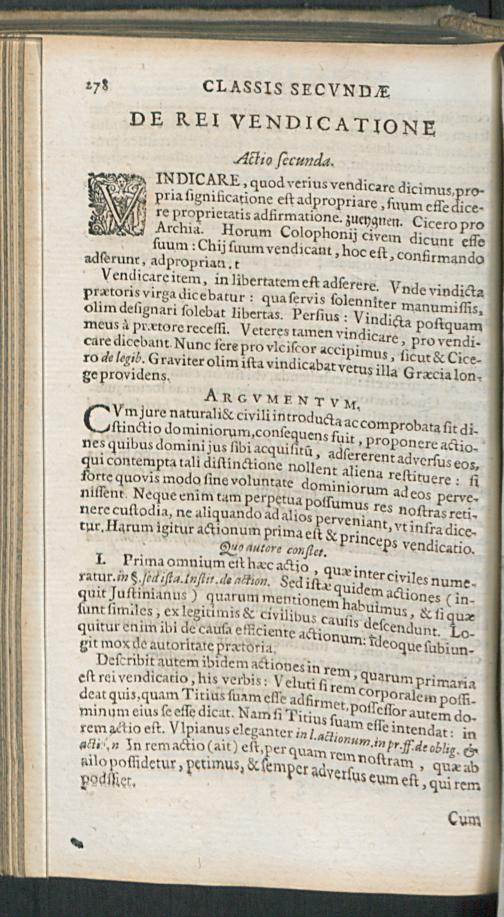 278 CLASSIS SECVNDÆ
DE REI VENDICATIONE
Actio secunda.
VINDICARE, quod verius vendicare dicimus, pro-
pria significatione est adpropriare, suum esse dice-
re proprietatis adfirmatione. zueygnen. Cicero pro
Archia. Horum Colophonij civem dicunt esse
suum: Chij suum vendicant, hoc est, confirmando
adserunt, adpropriant.
Vendicare item, in libertatem est adserere. Vnde vindicta
prætoris virga dicebatur: qua servis solenniter manumissis,
olim designari solebat libertas. Persius: Vindicta postquam
meus à prætore recessi. Veteres tamen vindicare, pro vendi-
care dicebant. Nunc fere pro vlciscor accipimus, sicut & Cice-
ro de legib. Graviter olim ista vindicabat vetus illa Græcia lon-
ge providens.
ARGVMENTVM.
CVm jure naturali & civili introducta ac comprobata sit di-
stinctio dominiorum, consequens fuit, proponere actio-
nes quibus domini jus sibi acquisitū, adsererent adversus eos,
qui contempta tali distinctione nollent aliena restituere: si
forte quovis modo sine voluntate dominiorum ad eos perve-
nissent. Neque enim tam perpetua possumus res nostras reti-
nere custodia, ne aliquando ad alios perveniant, vt infra dice-
tur. Harum igitur actionum prima est & princeps vendicatio.
Quo autore constet.
I. Prima omnium est hæc actio, quæ inter civiles nume-
ratur. in §. sed ista. Instit. de action. Sed istæ quidem actiones (in-
quit Justinianus) quarum mentionem habuimus, & si quæ
sunt similes, ex legitimis & civilibus causis descendunt. Lo-
quitur enim ibi de causa efficiente actionum: Ideoque subiun-
git mox de autoritate prætoria.
Describit autem ibidem actiones in rem, quarum primaria
est rei vendicatio, his verbis: Veluti si rem corporalem possi-
deat quis, quam Titius suam esse adfirmet, possessor autem do-
minum eius se esse dicat. Nam si Titius suam esse intendat: in
rem actio est. Vlpianus eleganter in l. actionum. in pr. ff. de oblig. &
actio, n In rem actio (ait) est, per quam rem nostram, quæ ab
alio possidetur, petimus, & semper adversus eum est, qui rem
possidet.
Cum